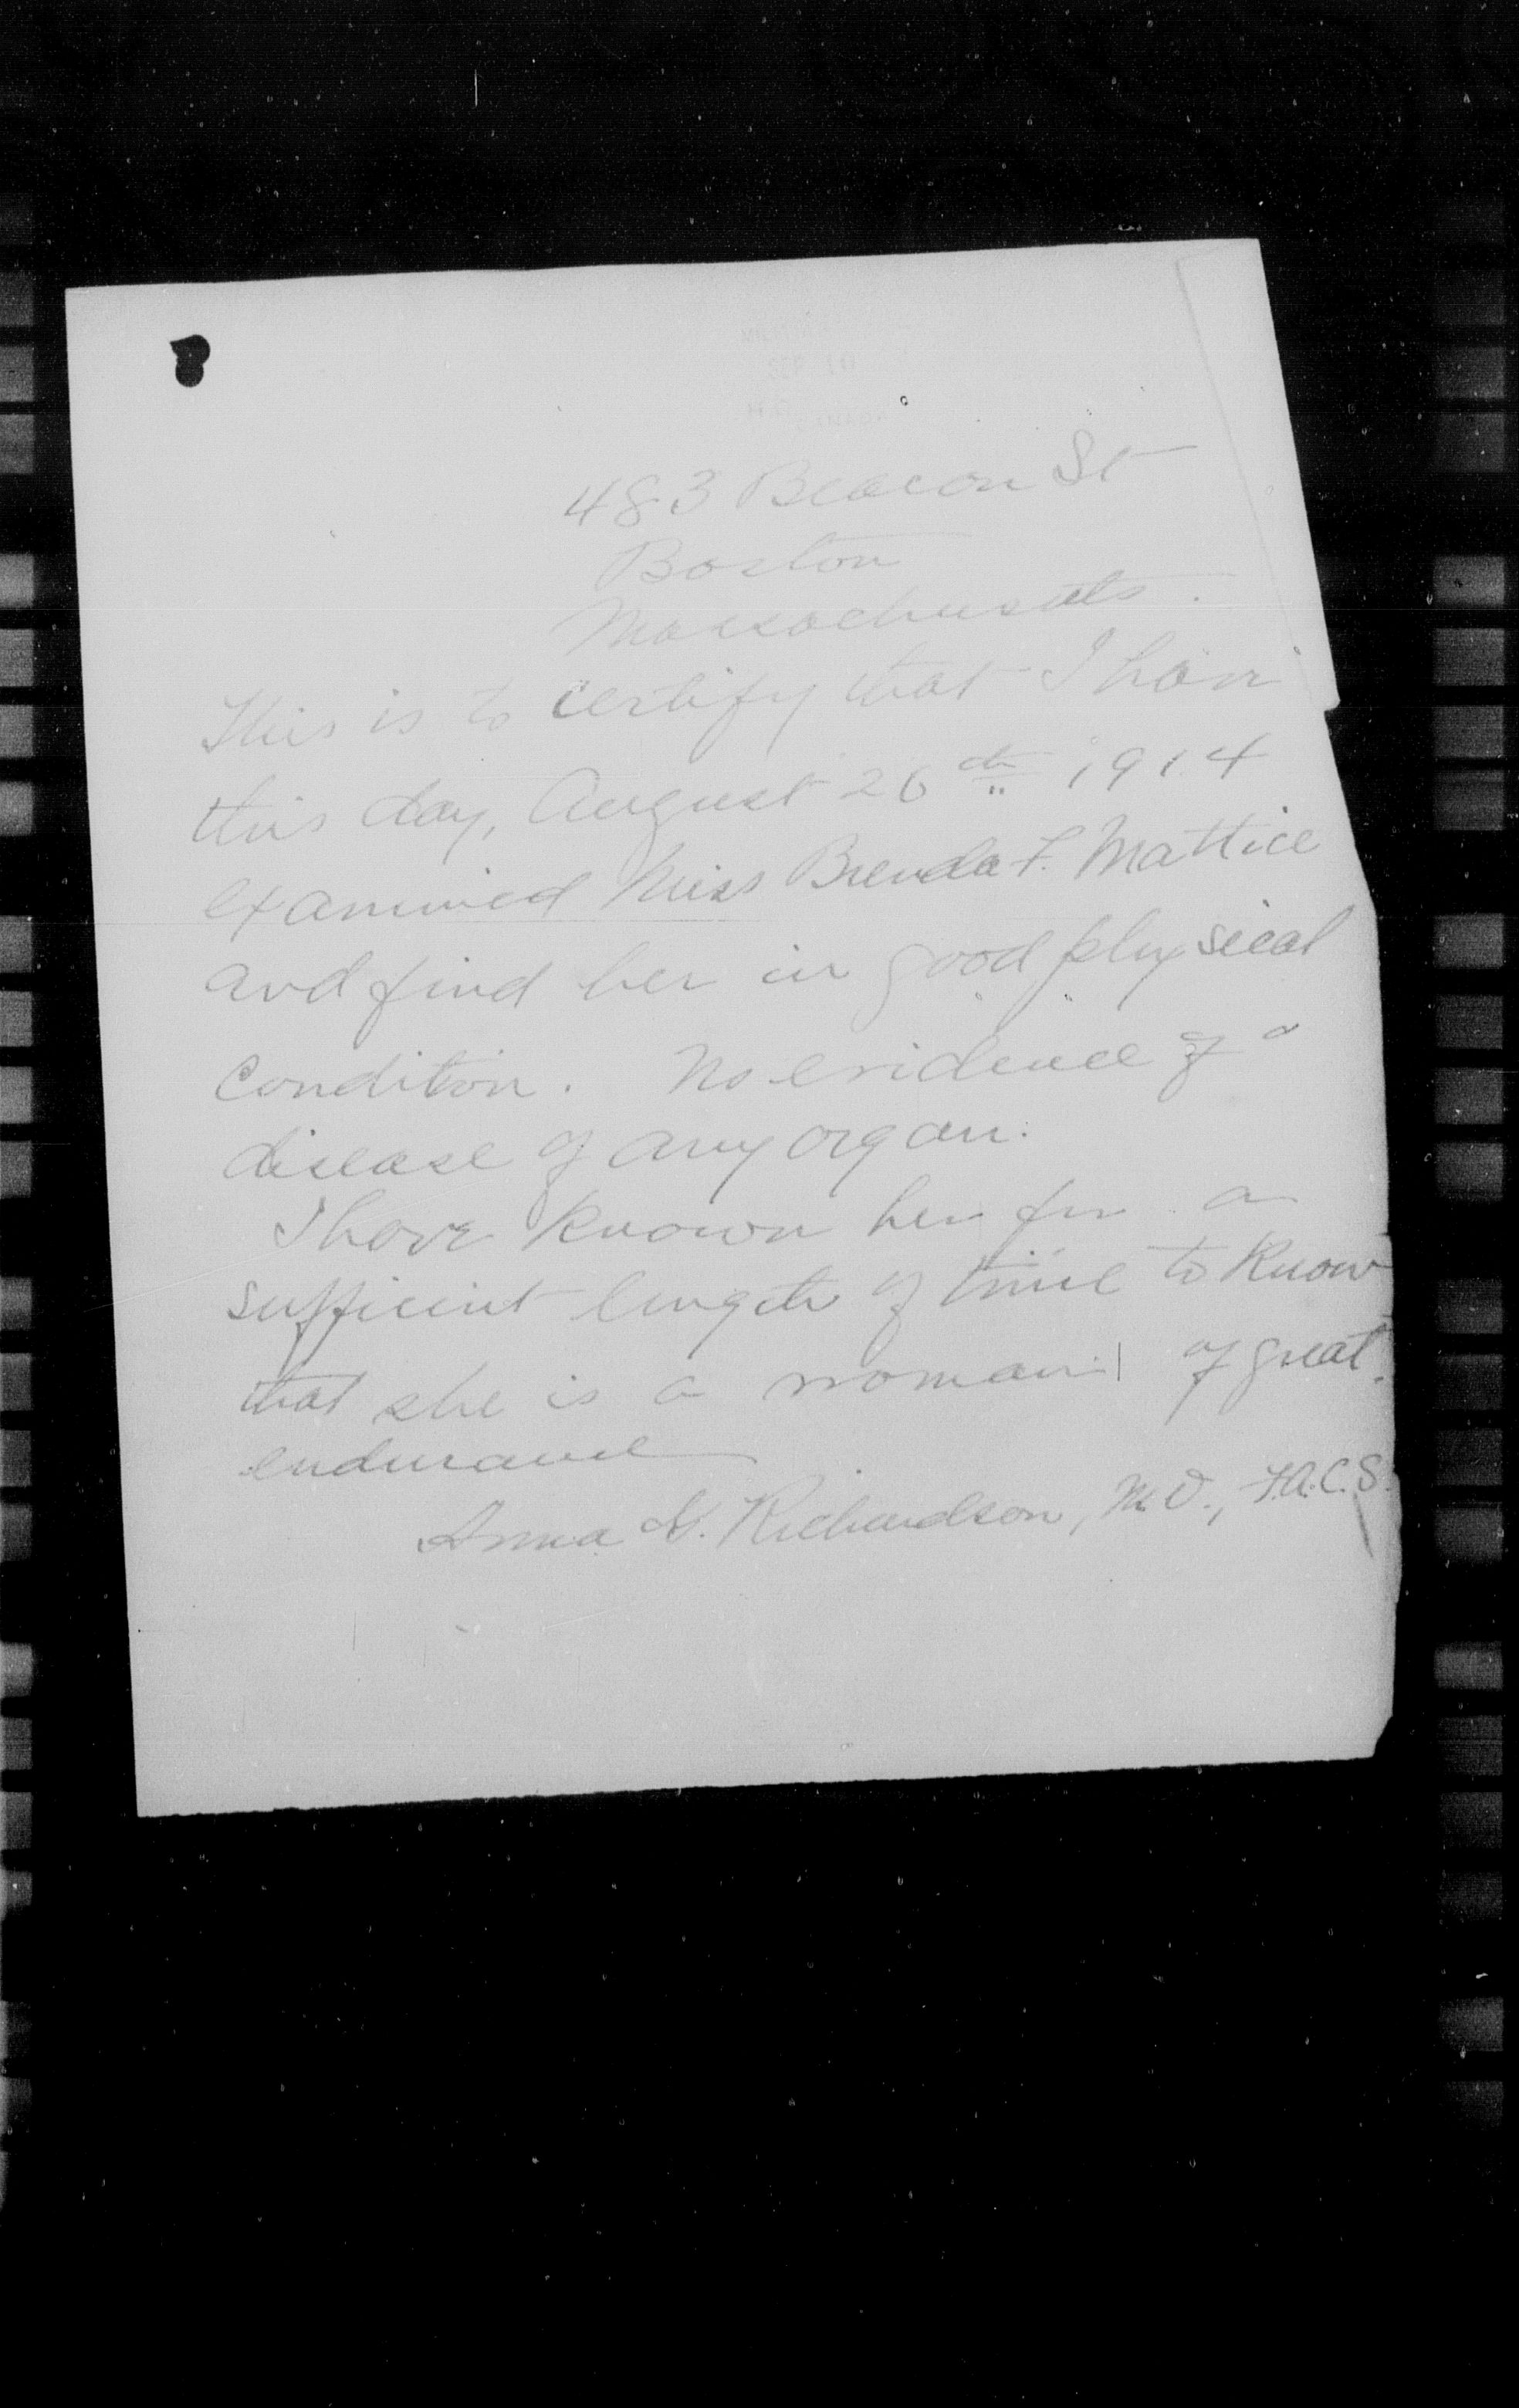 483 Beacon St
Boston
Massachusetts.
This is to certify that I have
this day, August 26th 1914
examined Miss Brenda F. Mattice
and find her in good physical
condition. No evidence of a
disease of any organ.
I have known her for a
sufficient length of time to know
that she is a woman of great
endurance
Anna G. Richardson, M.D., F.A.C.S.